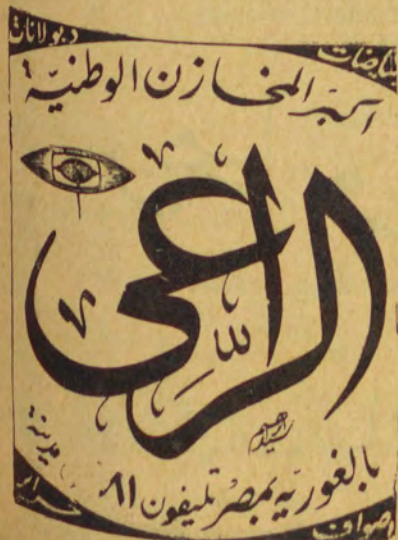 بياضات
ديولانات
اكبر المخازن الوطنية
الراعى
لله
بالغورية بمصر تليفون ٨١ مدينة
اصواف
حراير